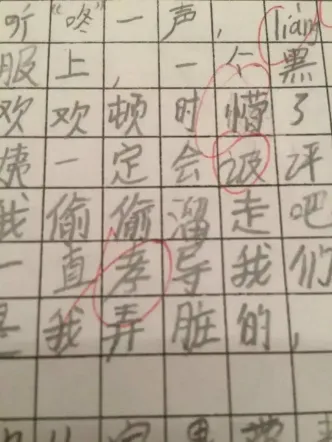 听“咚”一声，liáng
服上，一个黑
欢欢顿时懵了
姨一定会评
我偷偷溜走吧
一直孝导我们
是我弄脏的，